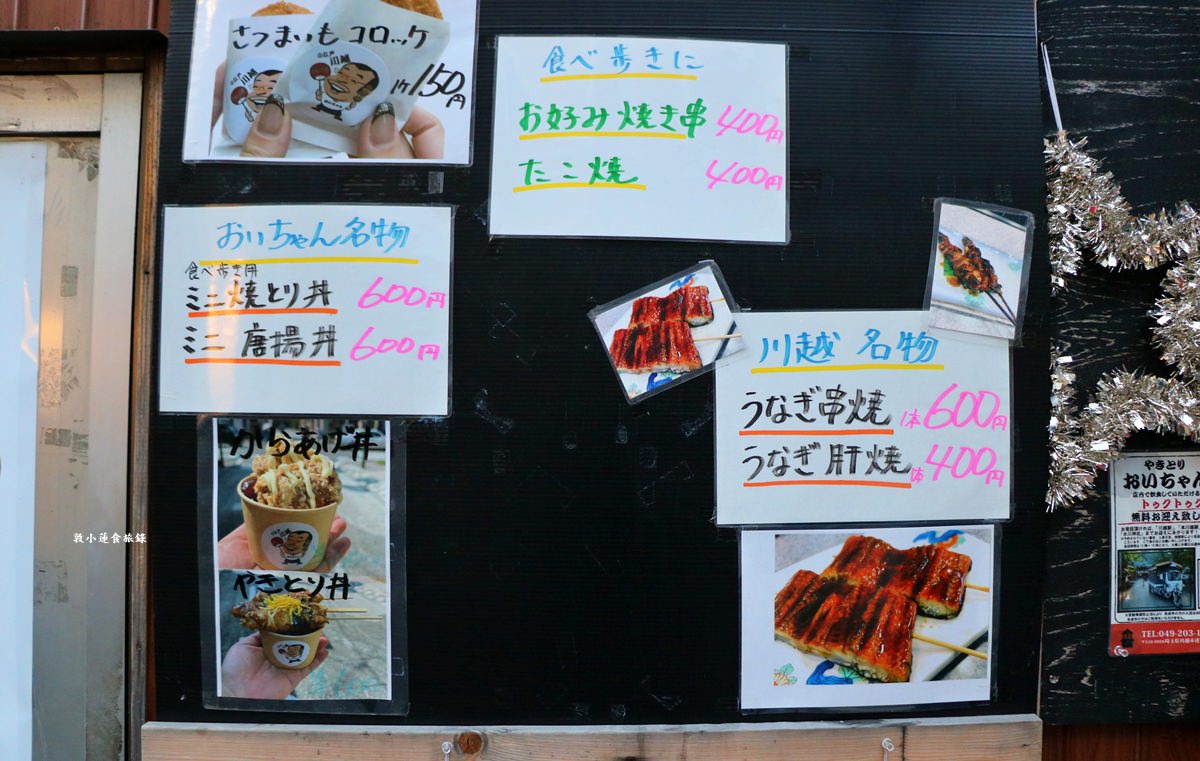 さつまいもコロッケ
1ケ150円
食べ歩きに
お好み焼き串 400円
たこ焼 400円
おいちゃん名物
食べ歩き用
ミニ焼とり丼 600円
ミニ唐揚丼 600円
からあげ丼
やきとり丼
川越名物
うなぎ串焼 1本600円
うなぎ肝焼 1本400円
やきとり
おいちゃん
店内で飲食していただける
トゥクトゥク
無料お迎え致し
TEL:049-203-1
敦小蓮食旅錄